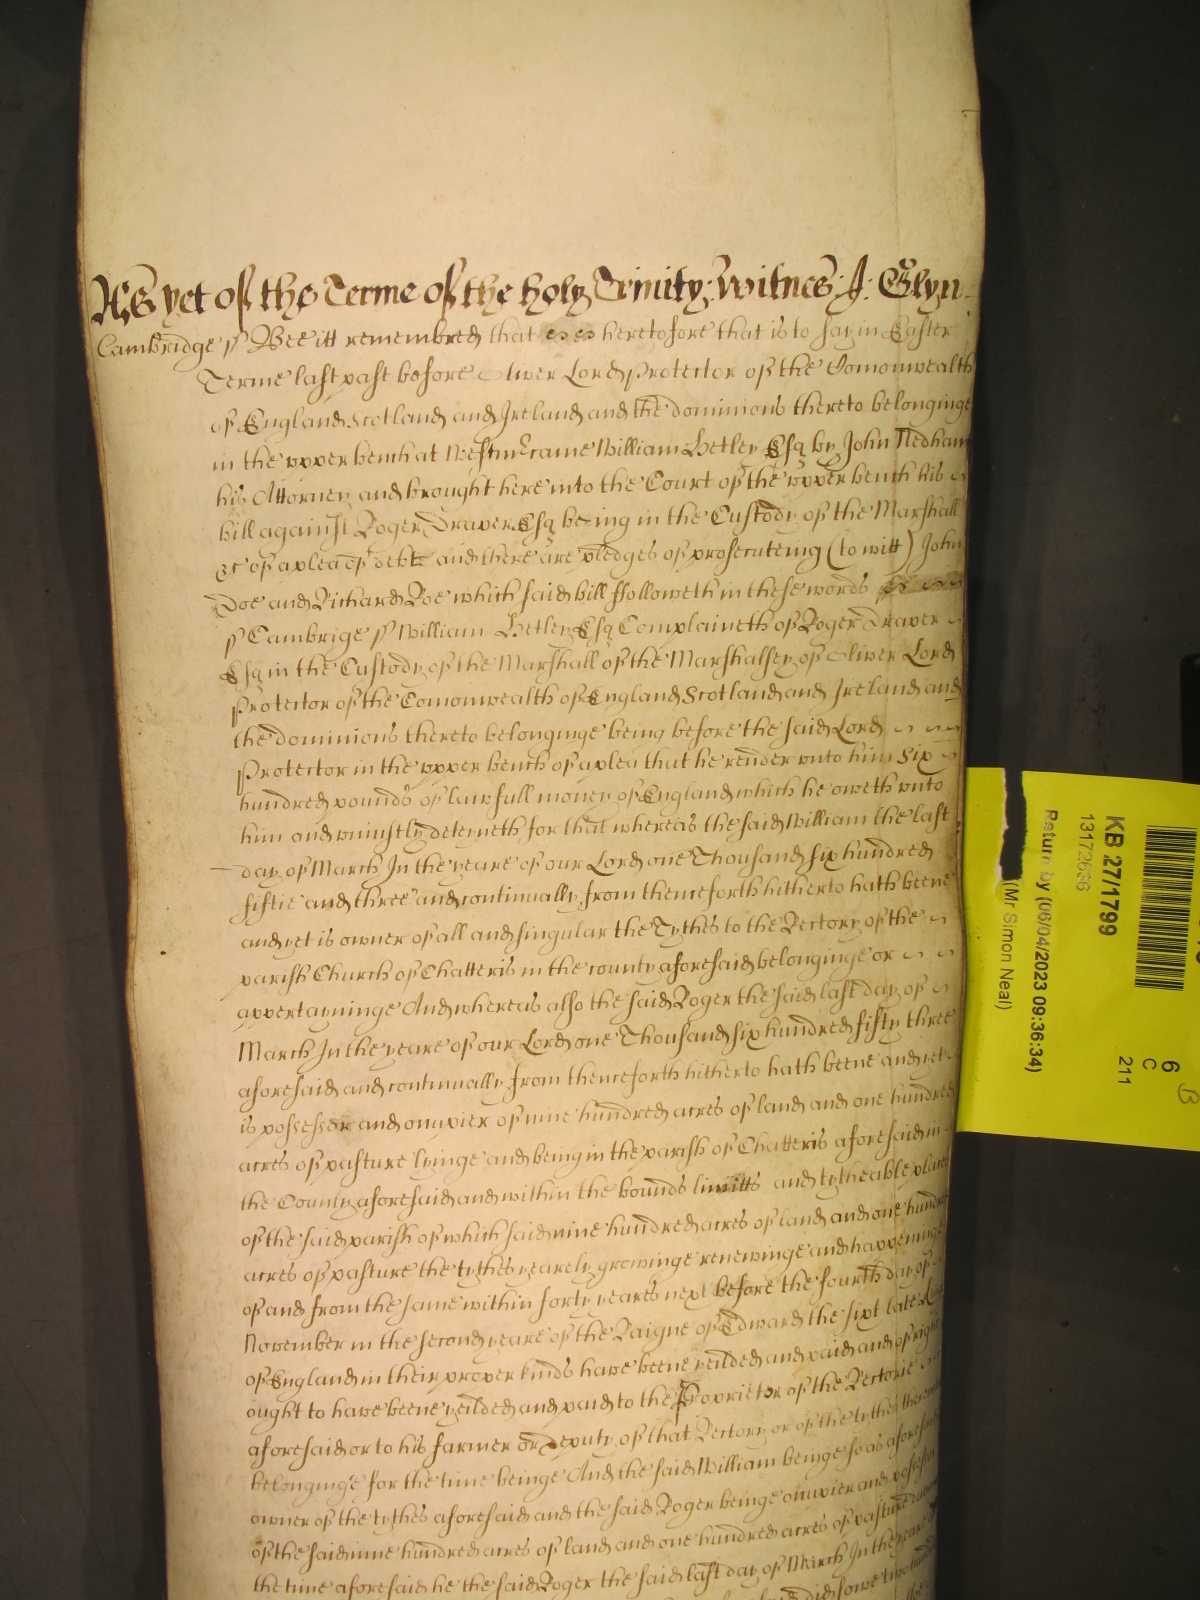 As yet of the Terme of the holy Trinity: Witnes: J: Glyn:
Cambridge ss Bee itt remembred that heretofore that is to say in Easter
Terme last past before Oliver Lord Protector of the Comonwealth
of England Scotland and Ireland and the dominions thereto belonginge
in the upper bench at Westmr came William Hetley Esq by John Nedham
his Attorney and brought here into the Court of the upper bench his
bill against Roger Draper Esq being in the Custody of the Marshall
&c of a plea of debt and there are pledges of prosecuteing (to witt) John
Doe and Richard Roe which said bill ffolloweth in these words
ss Cambrige ss William Hetley Esq Complaineth of Roger Draper
Esq in the Custody of the Marshall of the Marshalsey of Oliver Lord
Protector of the Comonwealth of England Scotland and Ireland and
the dominions thereto belonginge being before the said Lord
Protector in the upper bench of a plea that he render unto him Six
hundred pounds of lawfull money of England which he oweth unto
him and uniustly deteyneth for that whereas the said William the last
day of March In the yeare of our Lord one Thousand six hundred
fiftie and three and continually from thenceforth hitherto hath beene
and yet is owner of all and singular the Tythes to the Rectory of the
parish Church of Chatteris in the county aforesaid belonginge or
appertayninge And whereas also the said Roger the said last day of
March In the yeare of our Lord one Thousand six hundred fifty three
aforesaid and continually from thenceforth hitherto hath beene and yet
is possessor and occupier of nine hundred acres of land and one hundred
acres of pasture lyinge and being in the parish of Chatteris aforesaid in
the County aforesaid and within the bounds limitts and tytheable places
of the said parish of which said nine hundred acres of land and one hundred
acres of pasture the tythes yearely growinge renewinge and happeninge
of and from the same within forty yeares next before the fourth day of
November in the second yeare of the Raigne of Edward the sixt late
of England in their proper kinds have beene yeilded and paid and of right
ought to have beene yeilded and paid to the Proprietor of the Rectorie
aforesaid or to his farmer or deputy of that Rectory or of the tythes thereunto
belonginge for the time beinge And the said William beinge so as aforesaid
owner of the tythes aforesaid and the said Roger beinge occupier and possessor
of the said nine hundred acres of land and one hundred acres of pasture
the time aforesaid he the said Roger the said last day of March In the yeare
did sowe two
KB 27/1799
13172636
Return by (06/04/2023 09:36:34)
(Mr Simon Neal)
6
C
211
B